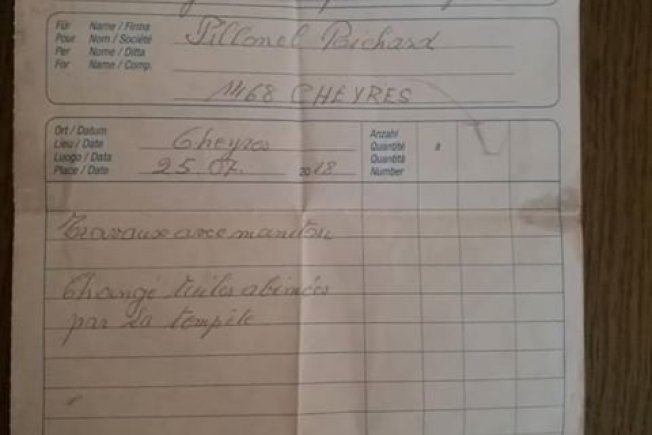 Für Name / Firma
Pour Nom / Société
Per Nome / Ditta
For Name / Comp.
Pillonel Richard
1468 CHEYRES
Ort / Datum
Lieu / Date
Luogo / Data
Place / Date
Cheyres
25.07. 2018
Anzahl
Quantité
Quantità
Number
à
Travaux avec manitou
Changé tuiles abimées
par la tempête